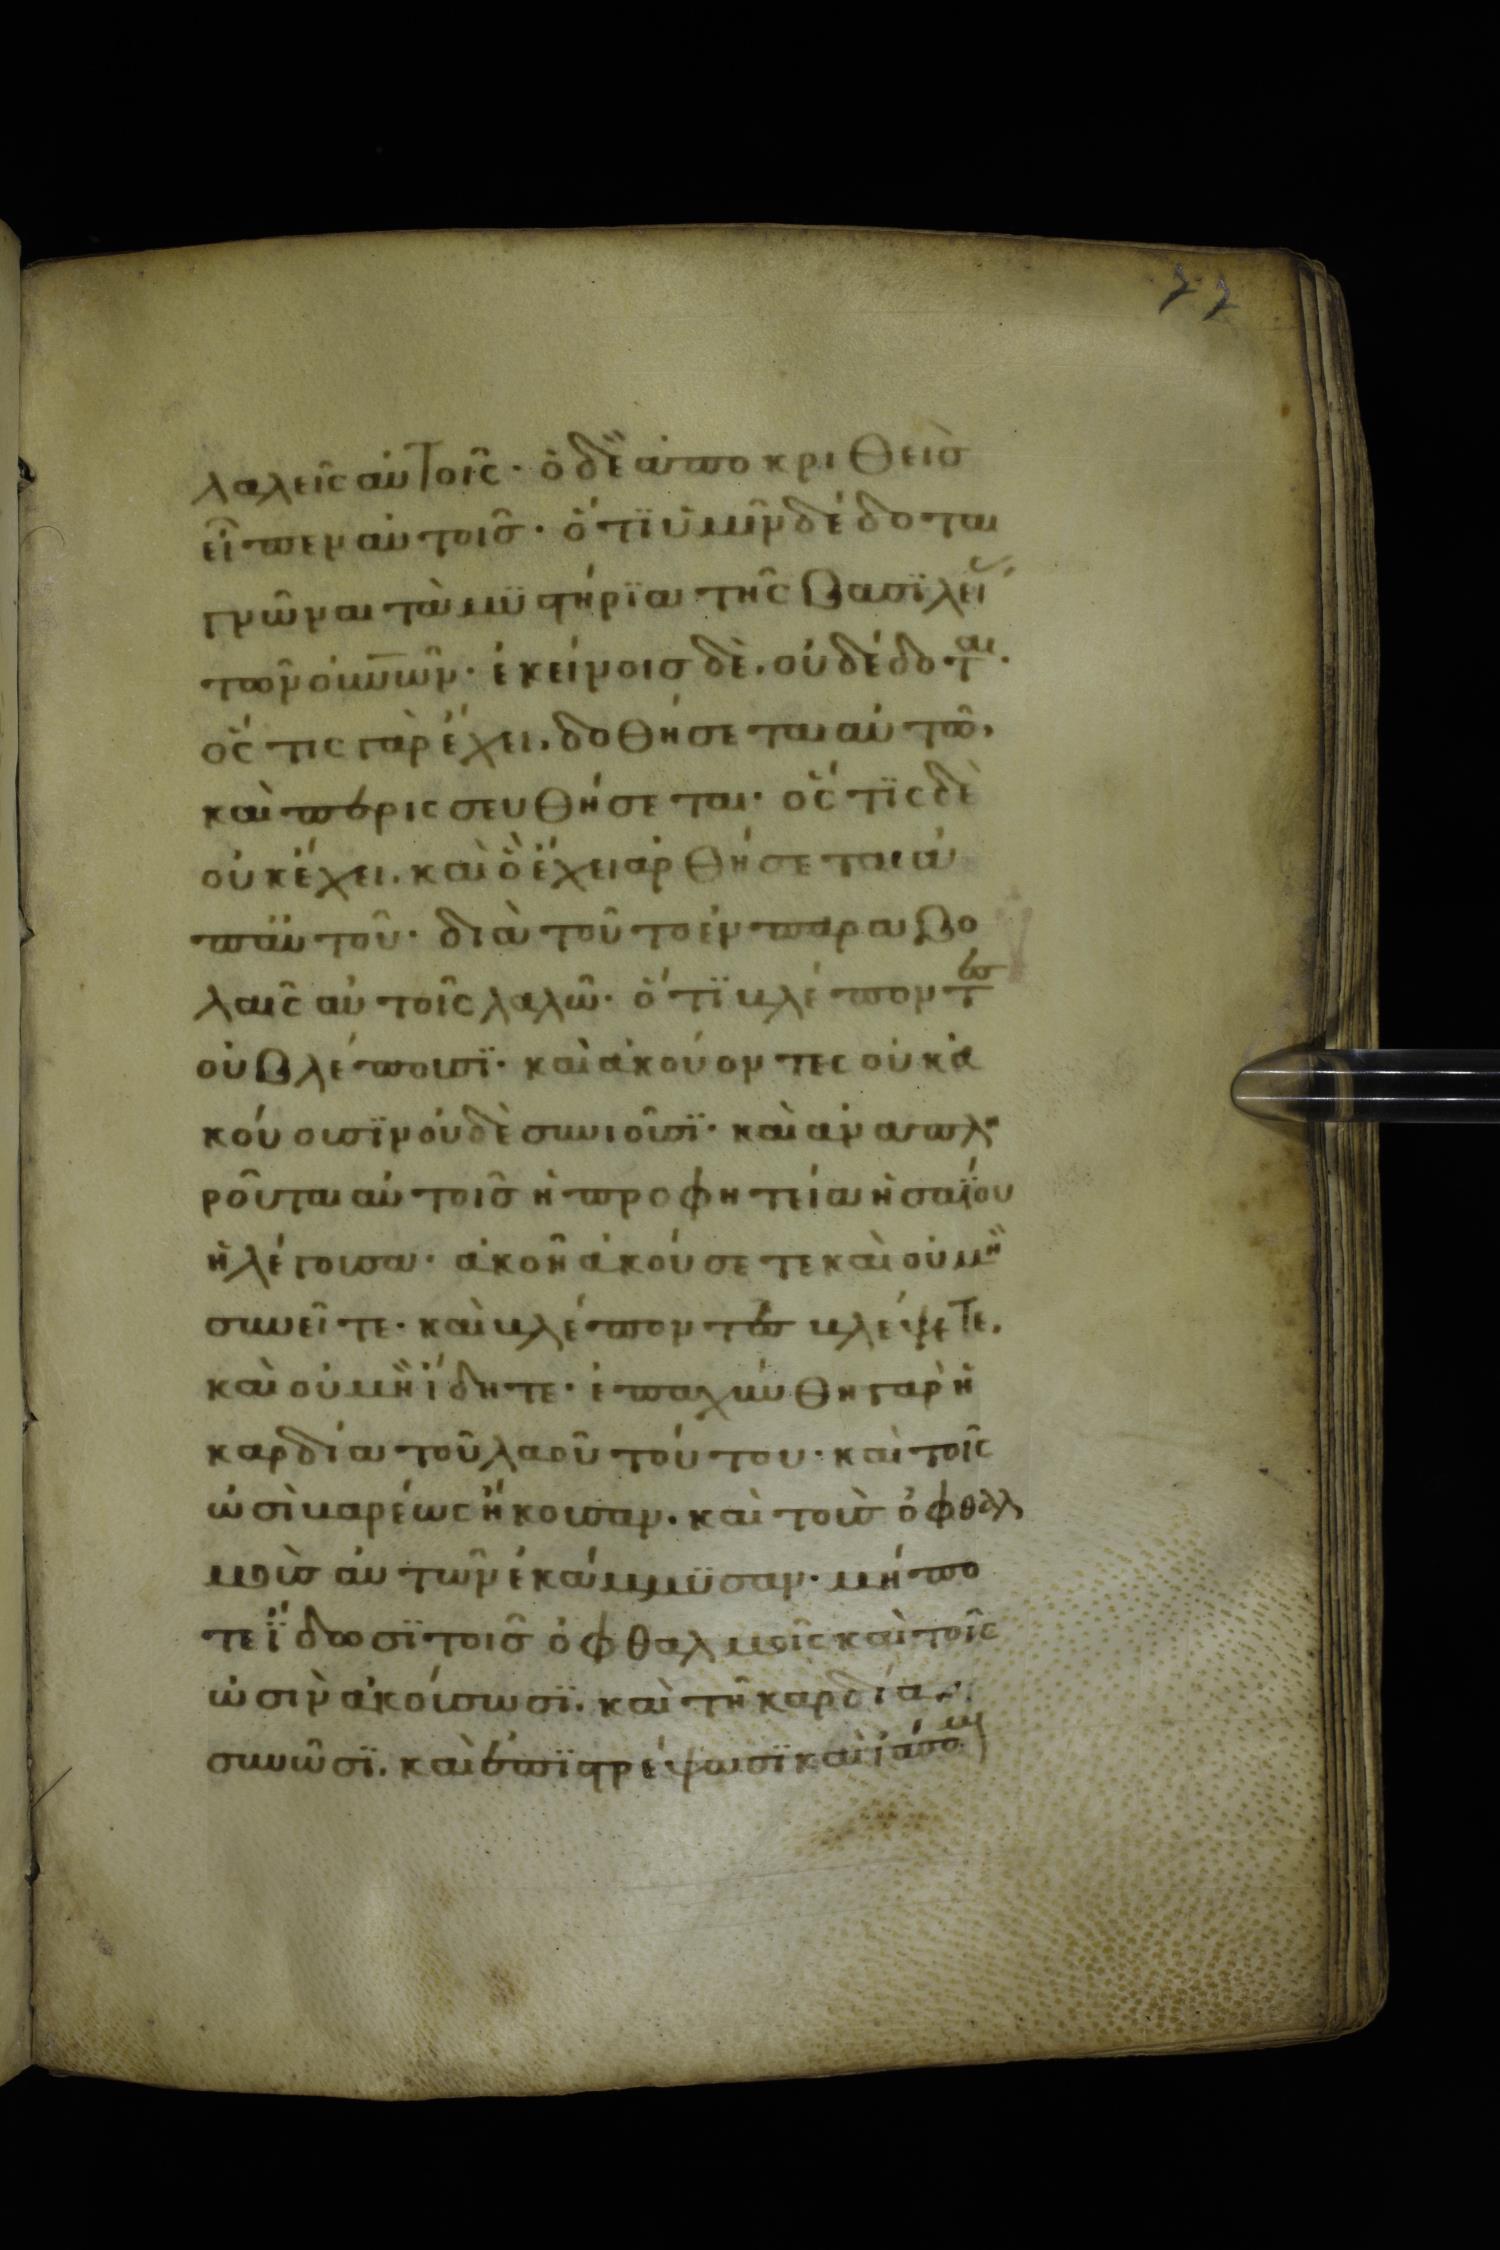 22
λαλεῖς αὐτοῖς· ὁ δὲ ἀποκριθεὶσ
εἶπεν αὐτοῖσ· ὅτϊ ὑμῖν δέδοται
γνῶναι τὰ μϋστήρϊα τῆς βασϊλεί
τῶν οὐν͞ων· ἐκείνοισ δὲ. οὐ δέδοται·
ὅς τις γὰρ ἔχει. δοθήσεται αὐτῶ.
καὶ περισσευθήσεται· ὅς τϊς δὲ
οὐκ ἔχει. καὶ ὃ ἔχει ἀρθήσεται ἀ
π αὐτοῦ· διὰ τοῦτο ἐν παραβο
λαῖς αὐτοῖς λαλῶ· ὅτϊ βλέποντεσ
οὐ βλέπουσϊ· καὶ ἀκούοντες οὐκ ἀ
κούουσϊν οὐδὲ συνιοῦσϊ· καὶ ἀναπλη
ροῦται αὐτοῖσ ἡ προφητεία ἡσαΐου
ἡ λέγουσα· ἀκοῆ ἀκούσετε καὶ οὐ μὴ
συνεῖτε· καὶ βλέποντεσ βλέψετε.
καὶ οὐ μὴ ἴδητε· ἐπαχύνθη γὰρ ἡ
καρδία τοῦ λαοῦ τούτου· καὶ τοῖς
ὠσὶ βαρέως ἤκουσαν. καὶ τοὺσ ὀφθαλ
μοὺσ αὐτῶν ἐκάμμϋσαν· μήπο
τε ἴδωσϊ τοῖσ ὀφθαλμοῖς καὶ τοῖς
ὠσὶν ἀκούσωσϊ. καὶ τῆ καρδία
συνῶσϊ. καὶ ἐπϊστρέψωσϊ καὶ ἰάσομαι